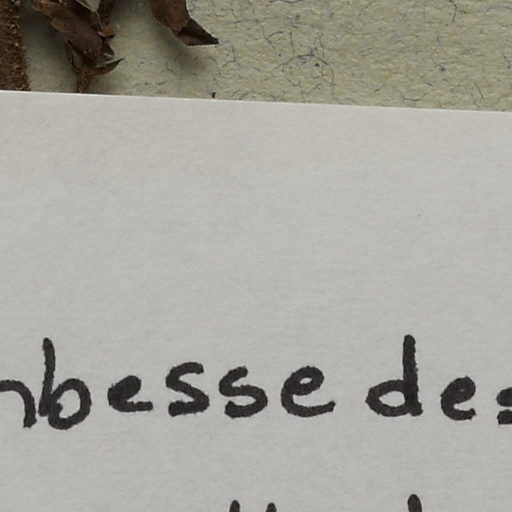 mbesse des